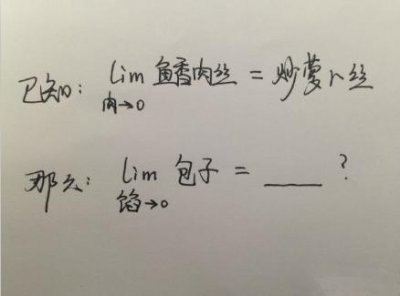 已知: lim 鱼香肉丝 = 炒萝卜丝
肉→0
那么: lim 包子 = ____ ?
馅→0